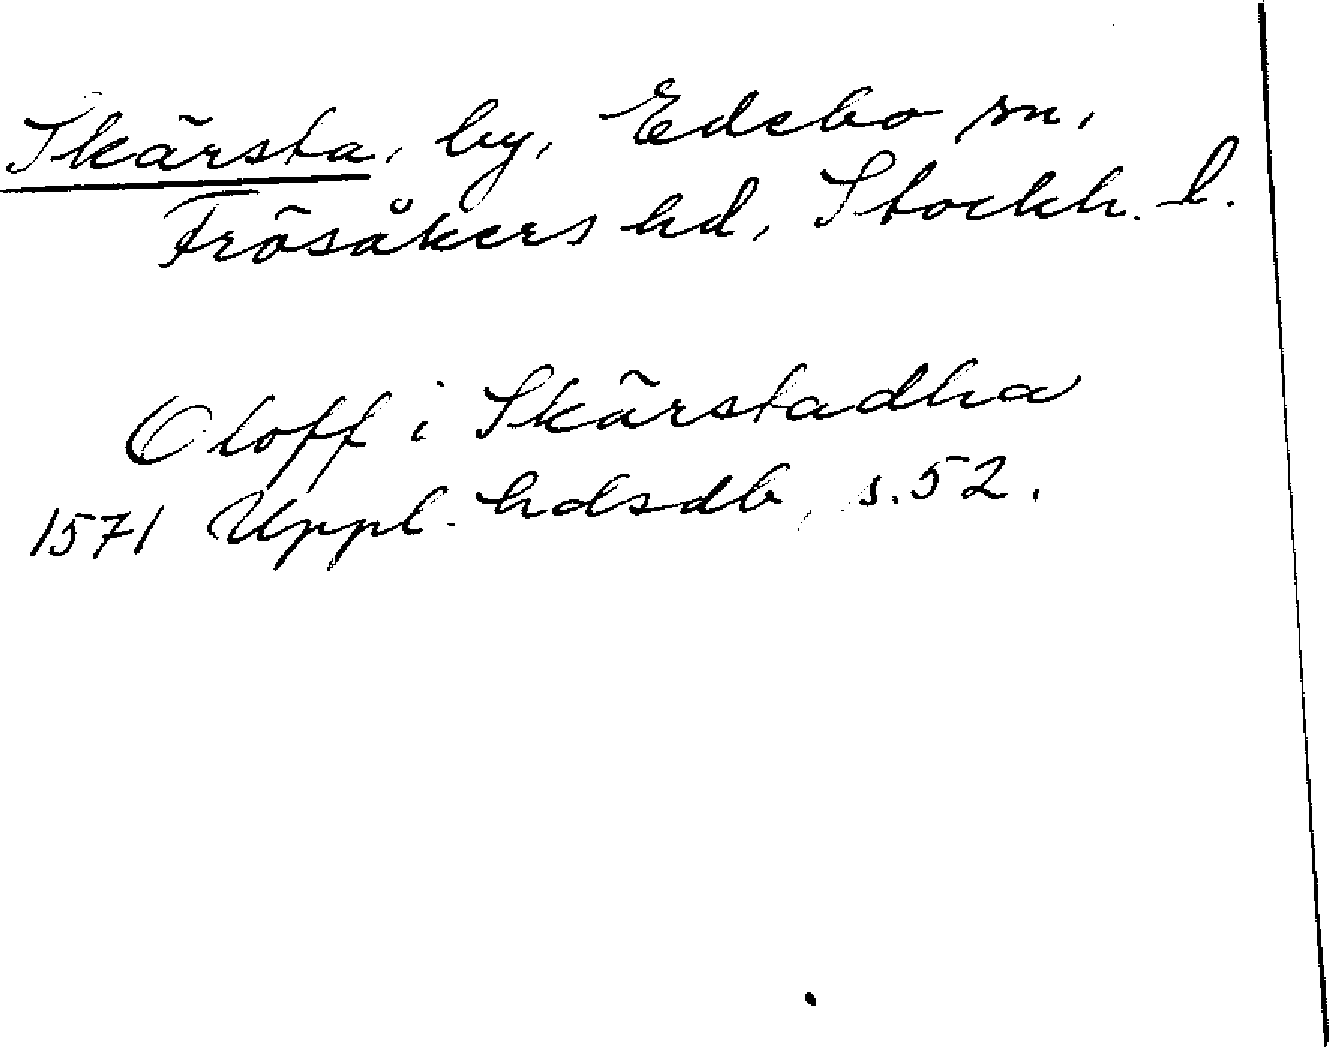 Skärsta, by, Edebo sn,
Frösåkers hd, Stockh. l.
Oloff i Skärstadha
1571 Uppl. hdsdb, s. 52.